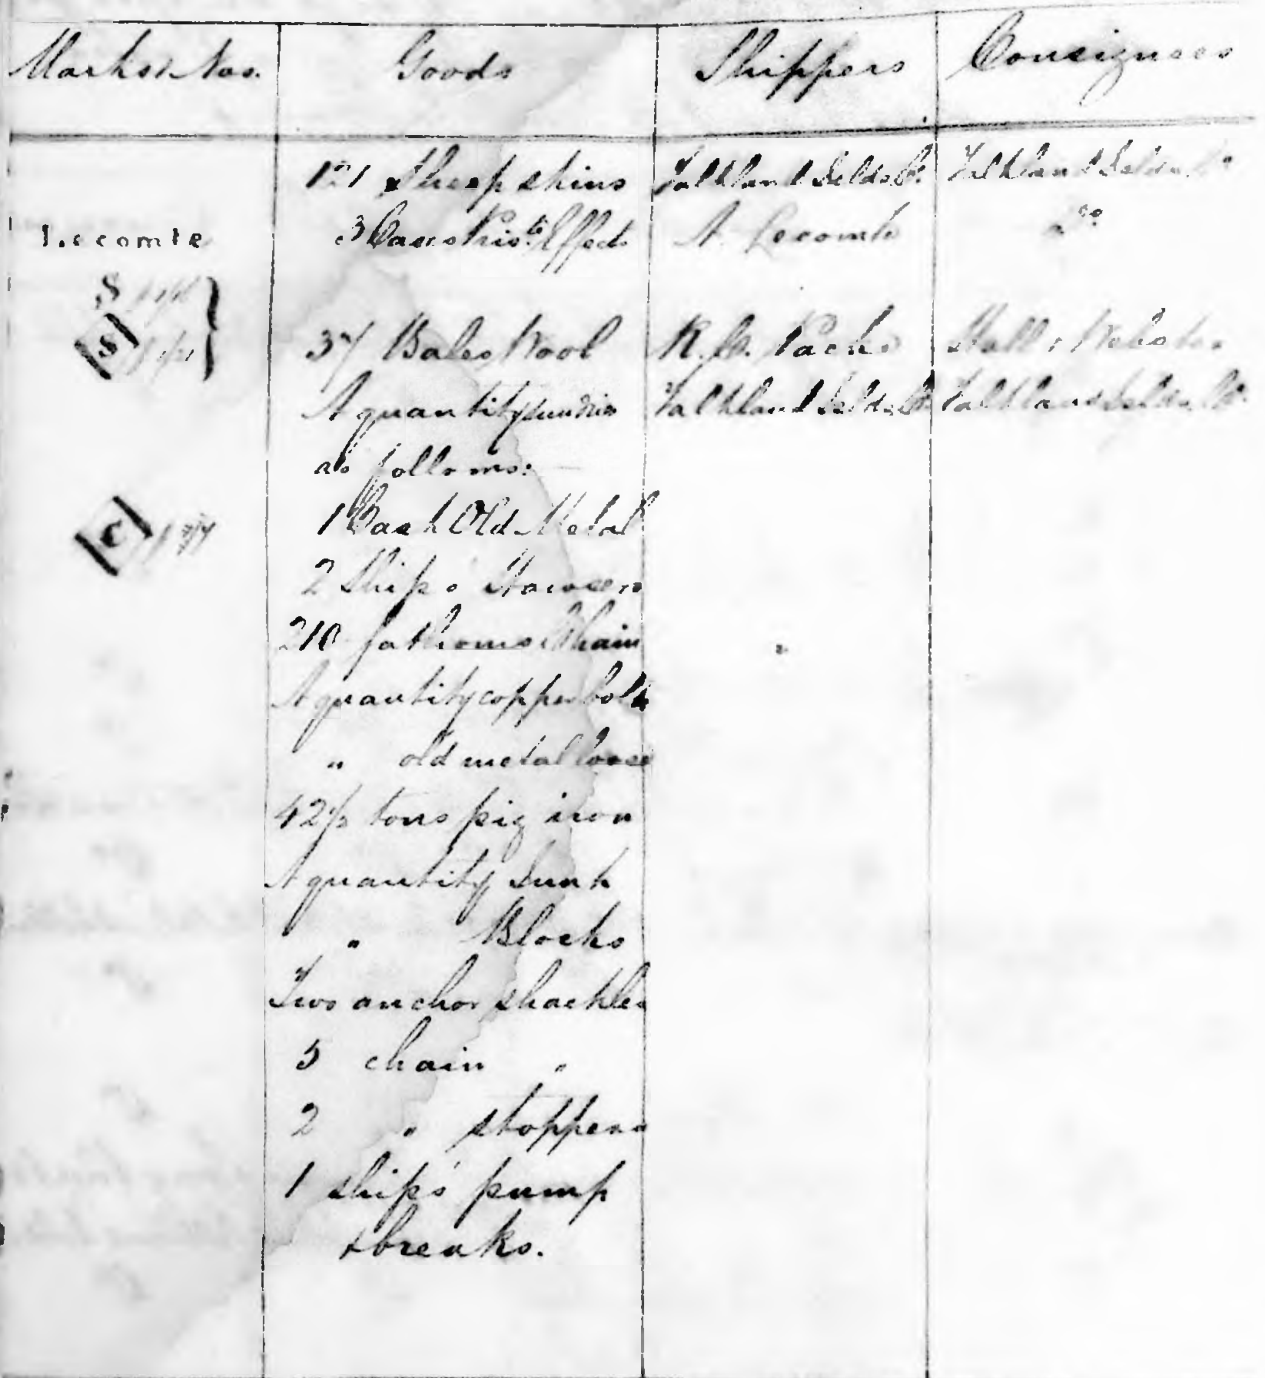 Marks & Nos. Goods Shippers Consignees
121 Sheepskins Falkland Islds Co. Falkland Islds Co.
Lecomte 3 Cases Priv.te Effects A. Lecomte Do
S
S 37 Bales Wool R. Packe Hall & Webster
A quantity sundries Falkland Islds Co. Falkland Islds Co.
as follows:
C 1 Cask Old Metal
2 Ship's Hawsers
210 fathoms Chain
A quantity copper bolts
" old metal loose
42½ tons pig iron
A quantity Junk
" Blocks
Two anchor shackles
5 chain "
2 " stoppers
1 ship's pump
& breaks.